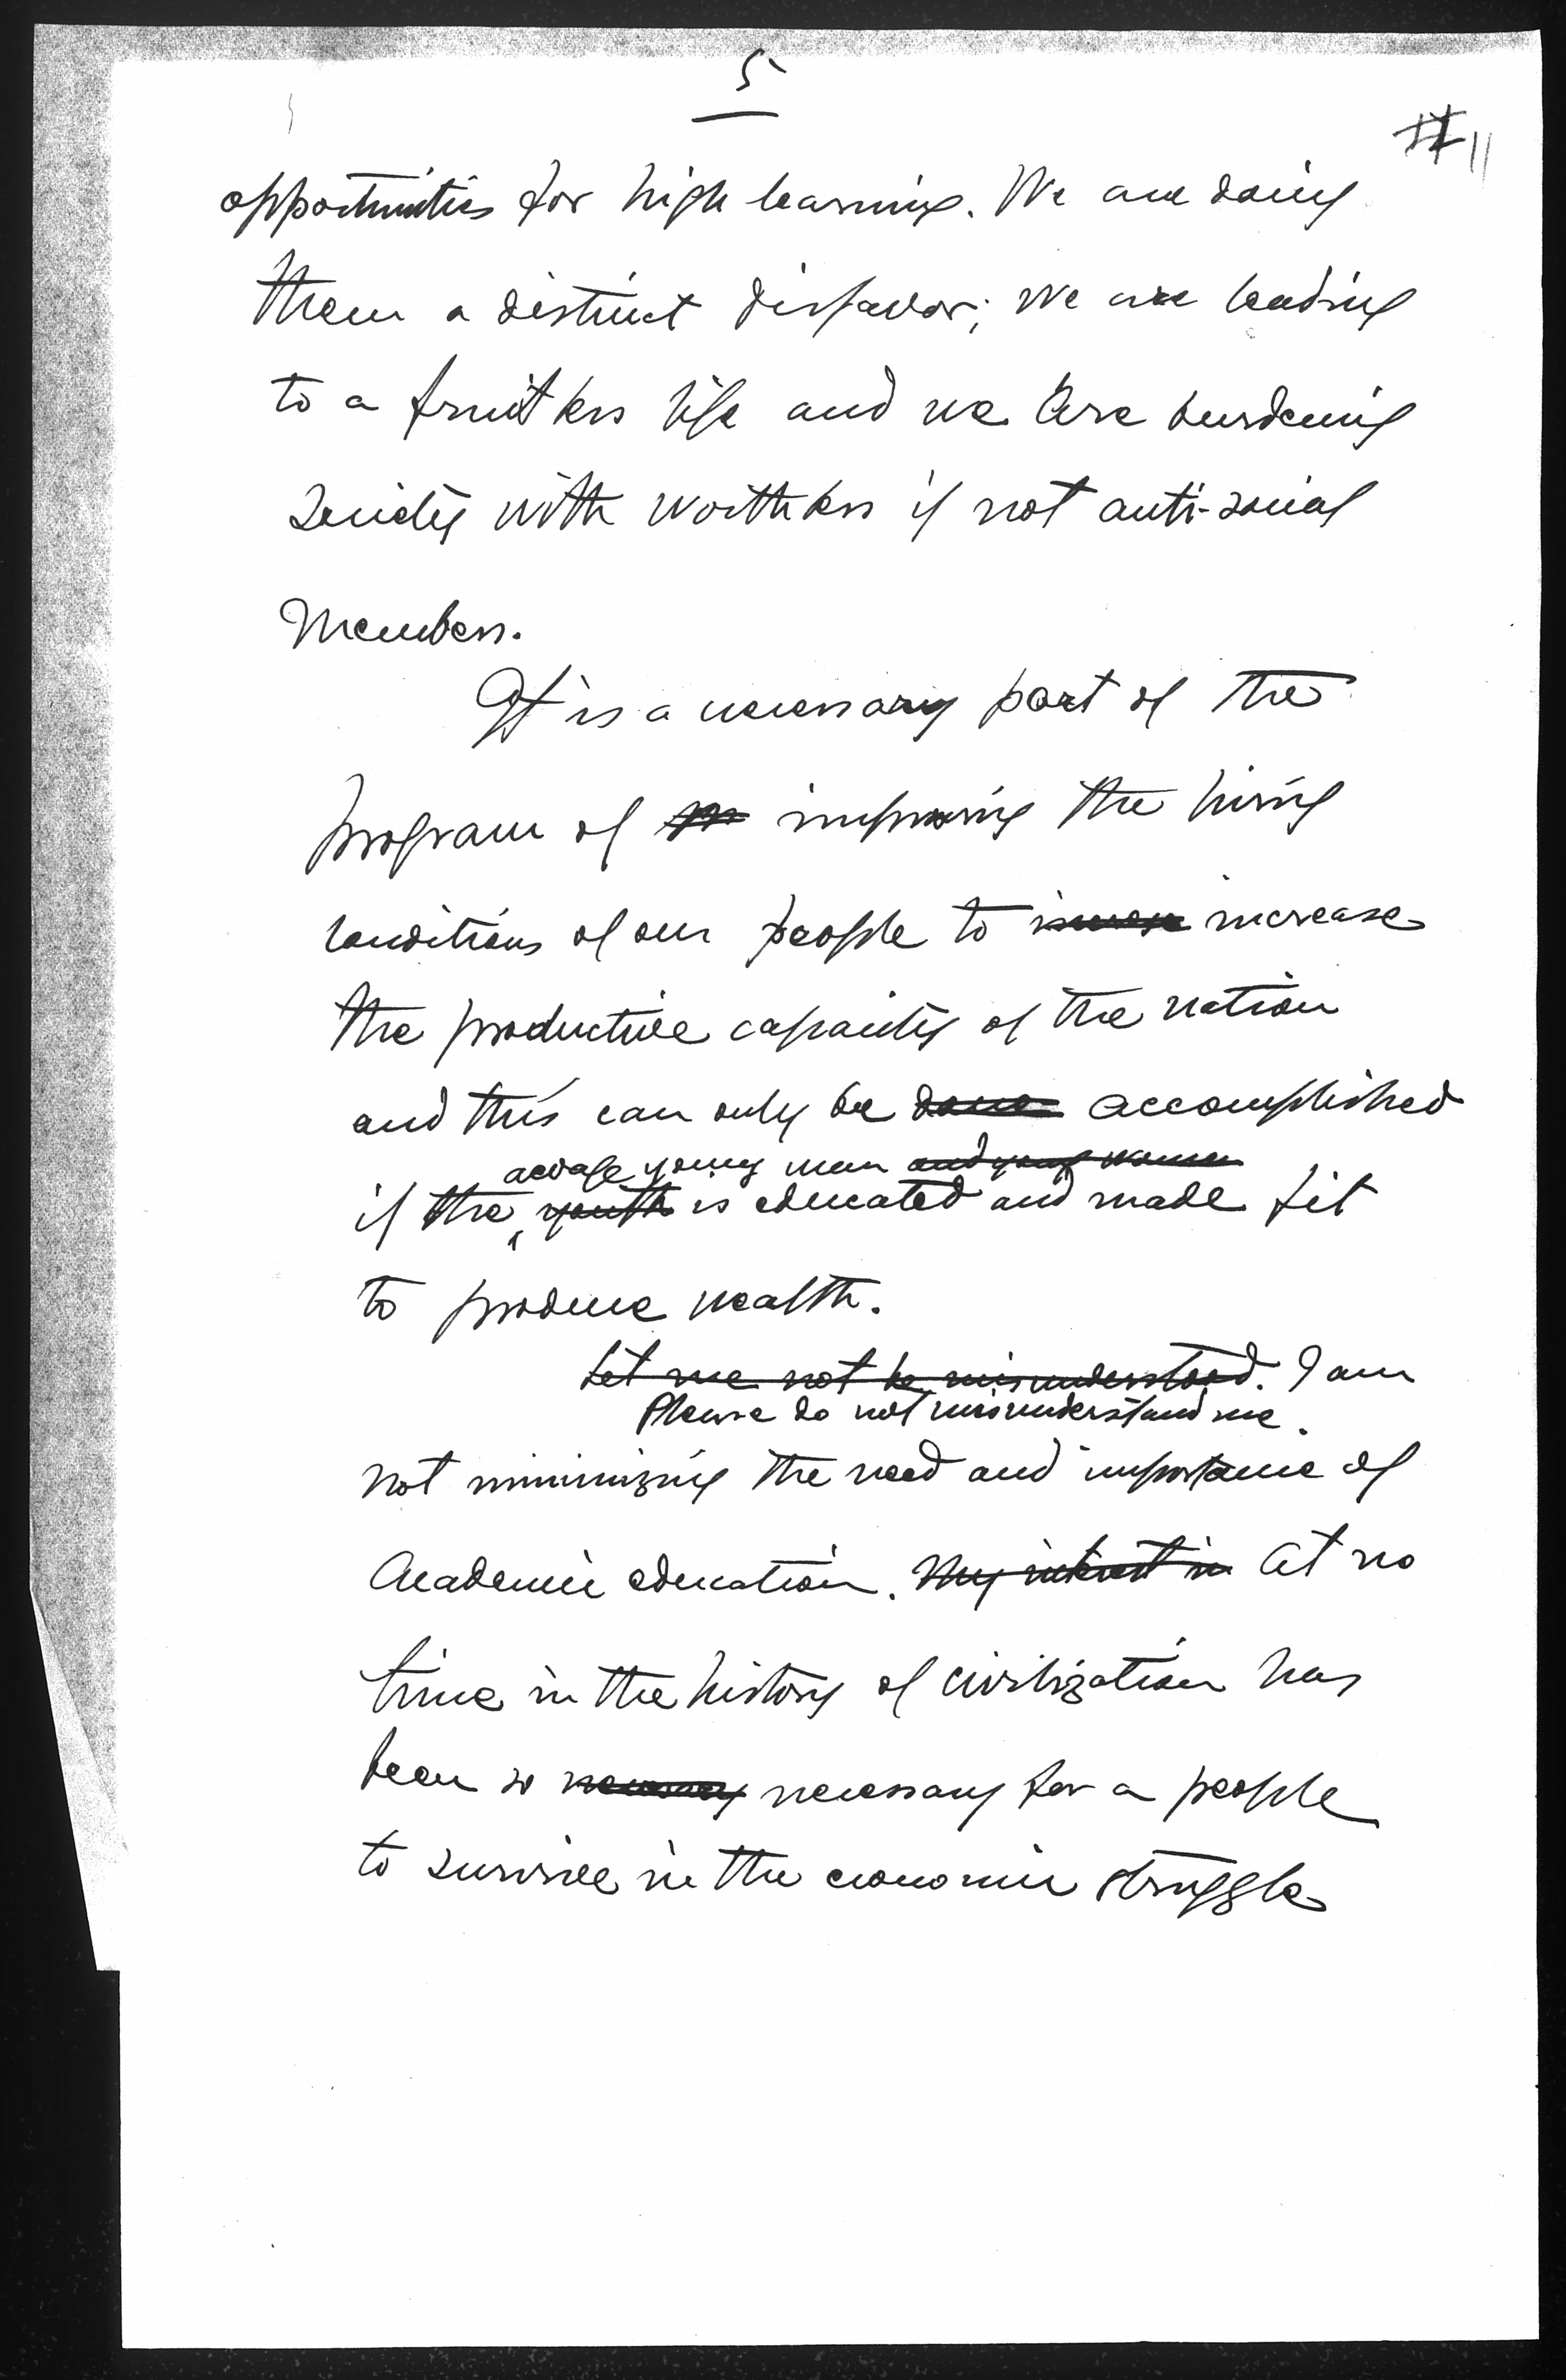 5
opportunities for high learning. We are doing
them a distinct disfavor; we are leading
to a fruitless life and we are burdening
society with worthless if not anti-social
members.
It is a necessary part of the
program of improving the living
conditions of our people to increase
the productive capacity of the nation
and this can only be done accomplished
average young man and young women
if the youth is educated and made fit
to produce wealth.
Let me not be misunderstood. I am
Please do not misunderstand me.
not minimizing the need and importance of
Academic education. My interest in At no
time in the history of civilization has
been so necessary necessary for a people
to survive in the economic struggle